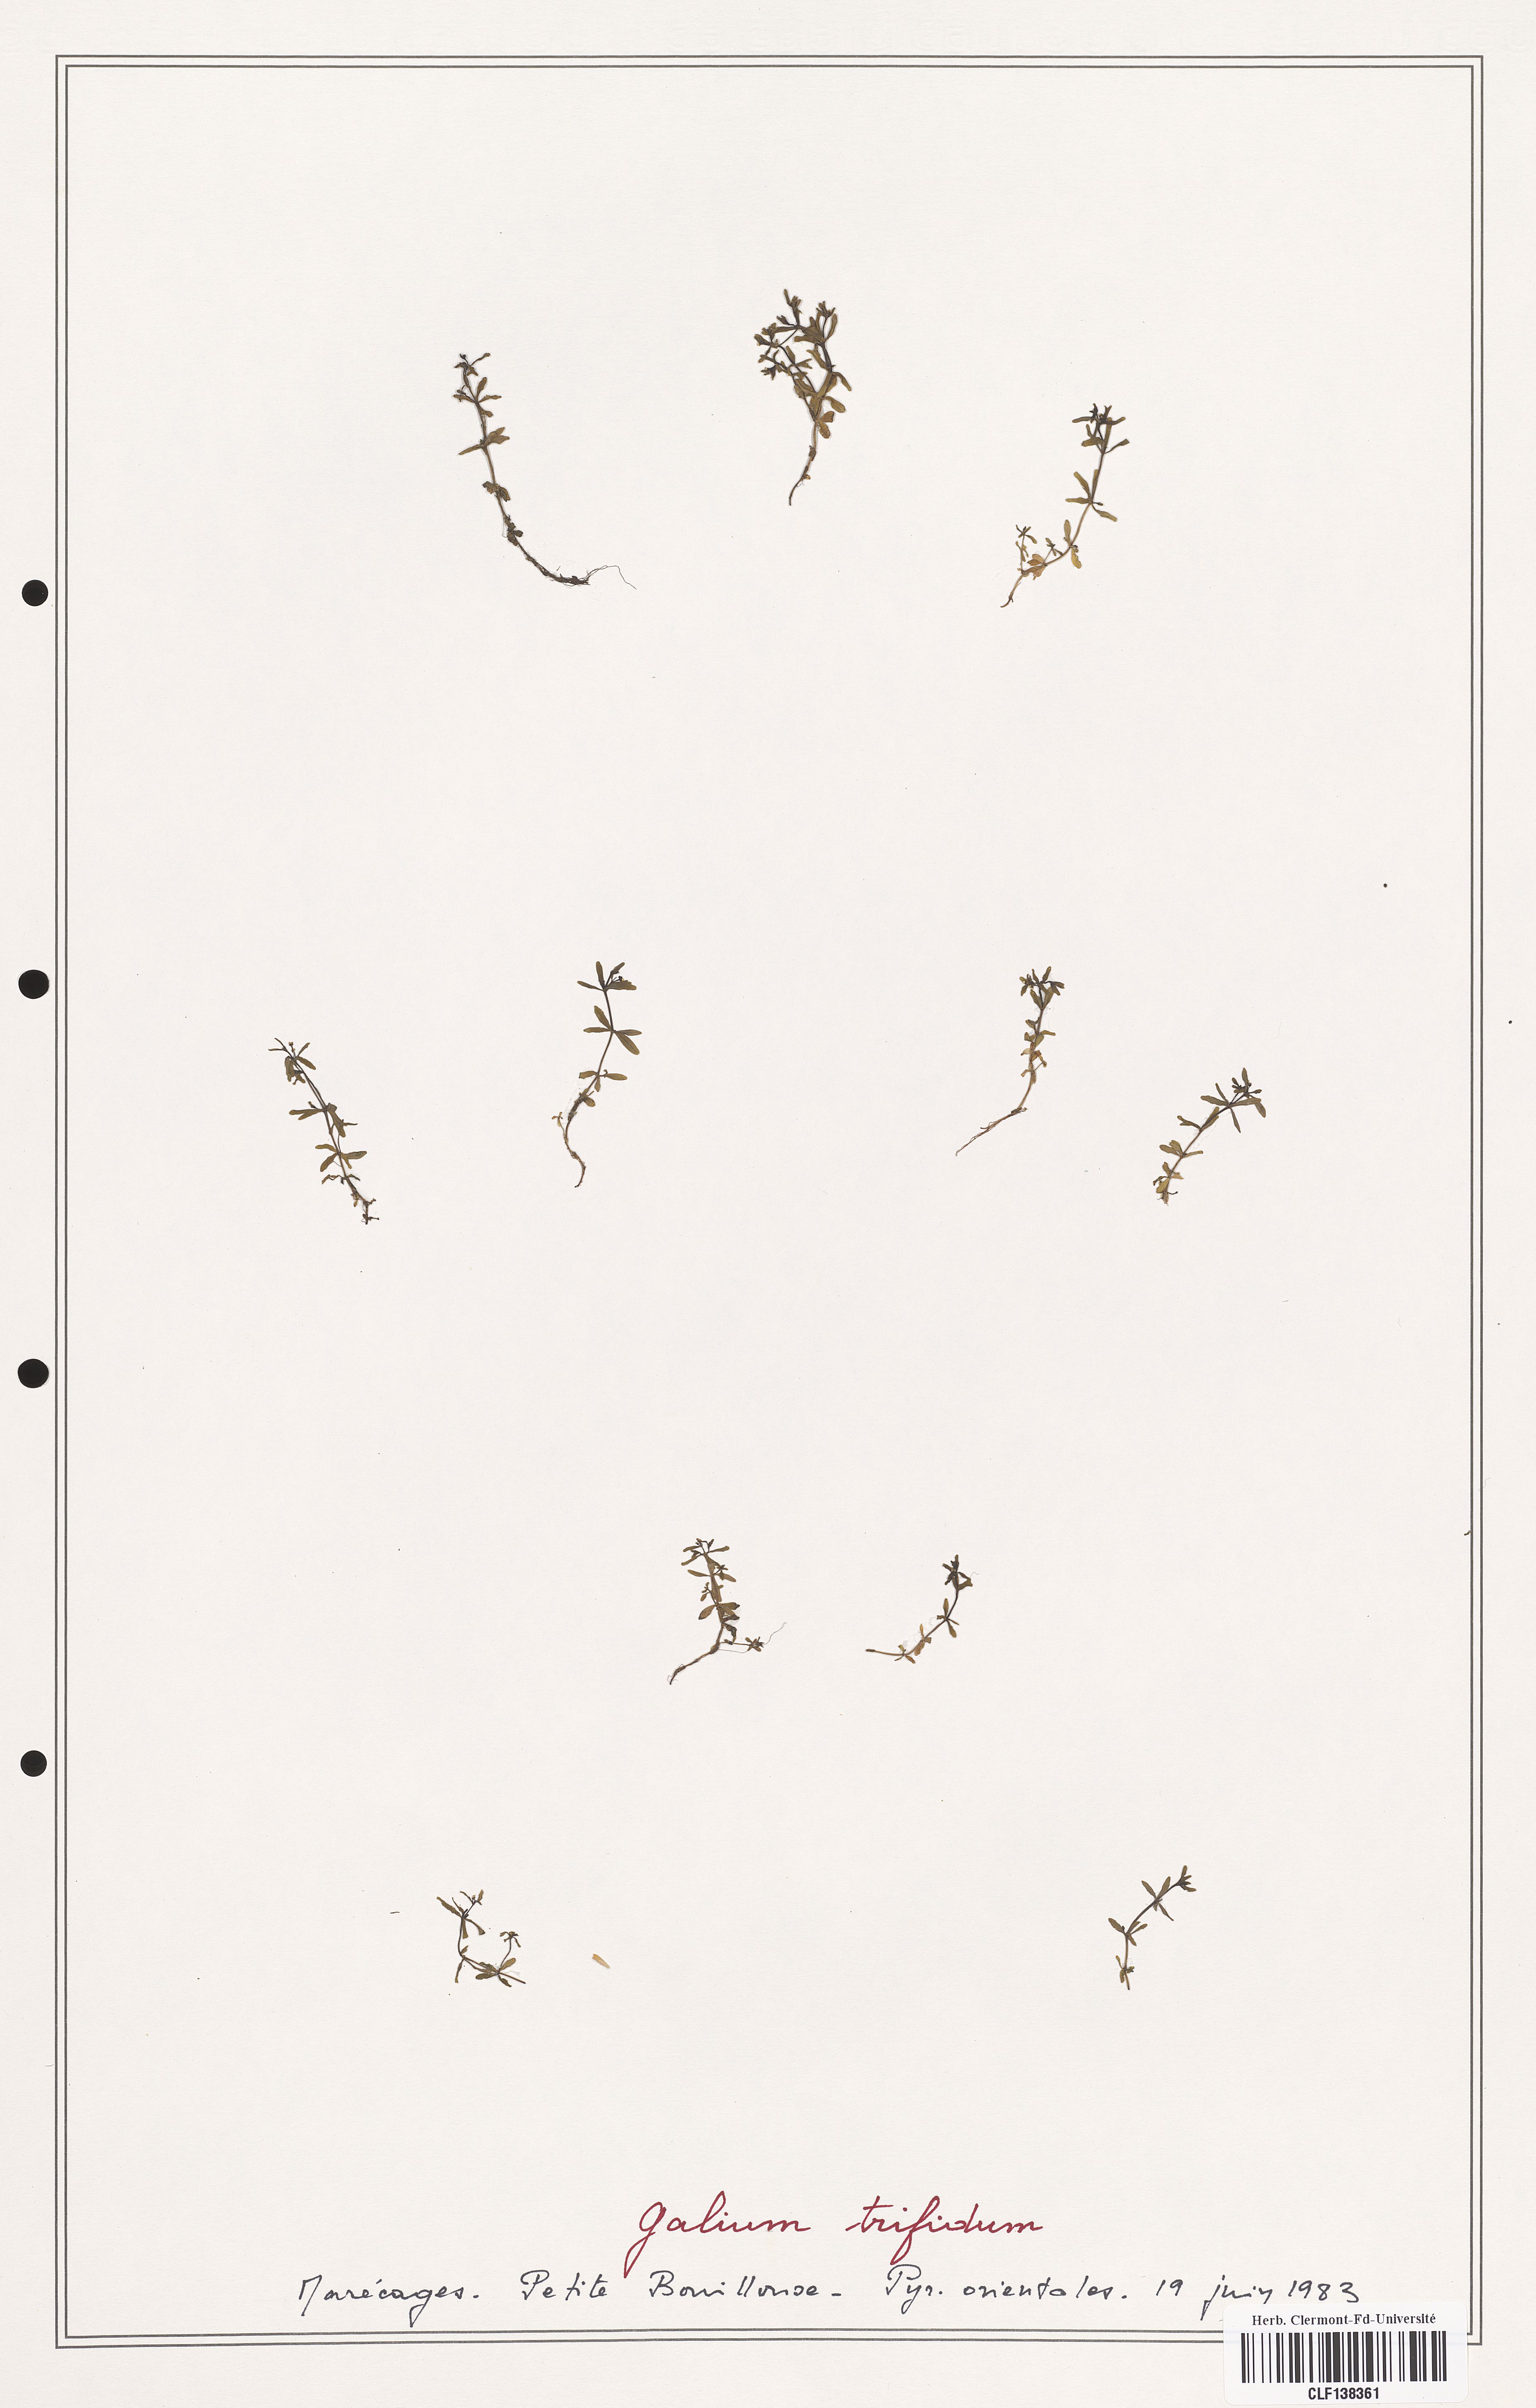 Galium trifidum
Marécages. Petite Bouillouse - Pyr. orientales. 19 juin 1983
Herb. Clermont-Fd-Université
CLF138361